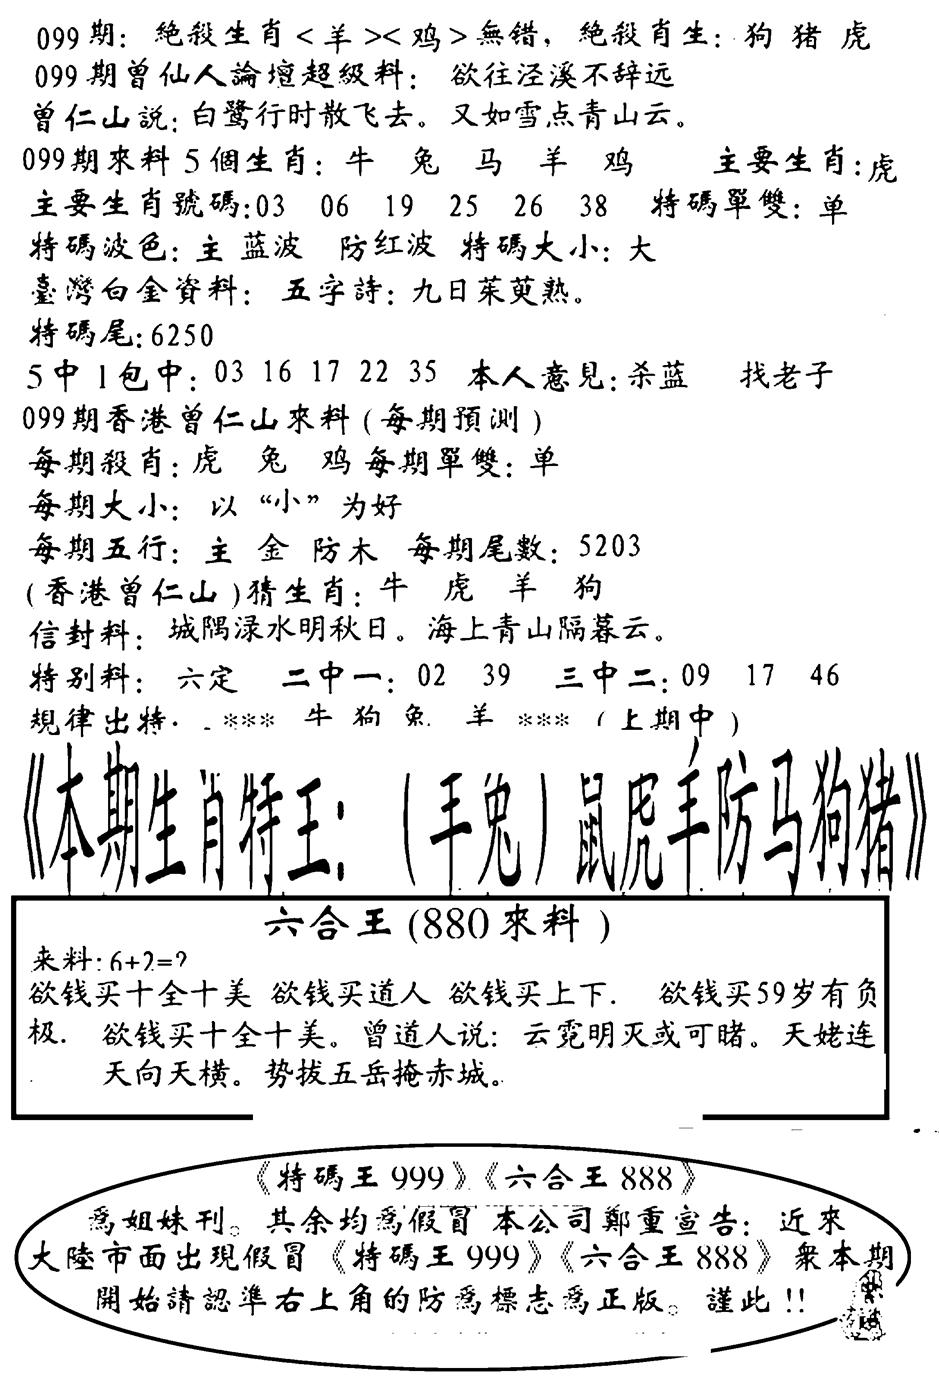 099期：絕殺生肖<羊><鸡>無错，絕殺肖生：狗 猪 虎
099期曾仙人論壇超級料： 欲往泾溪不辞远
曾仁山説：白鹭行时散飞去。又如雪点青山云。
099期來料5個生肖：牛 兔 马 羊 鸡 主要生肖：虎
主要生肖號碼：03 06 19 25 26 38 特碼單雙：单
特碼波色：主 蓝波 防红波 特碼大小：大
臺灣白金資料： 五字詩：九日茱萸熟。
特碼尾：6250
5中1包中：03 16 17 22 35 本人意見：杀蓝 找老子
099期香港曾仁山來料(每期預測)
每期殺肖：虎 兔 鸡 每期單雙：单
每期大小： 以“小”为好
每期五行： 主 金 防木 每期尾數：5203
(香港曾仁山)猜生肖：牛 虎 羊 狗
信封料： 城隅渌水明秋日。海上青山隔暮云。
特别料： 六定 二中一：02 39 三中二：09 17 46
規律出特. *** 牛 狗 兔 羊 *** (上期中)
《本期生肖特王：（羊兔）鼠虎羊防马狗猪》
六合王(880來料)
来料：6+2=?
欲钱买十全十美 欲钱买道人 欲钱买上下. 欲钱买59岁有负
极. 欲钱买十全十美。曾道人说：云霓明灭或可睹。天姥连
天向天横。势拔五岳掩赤城。
《特碼王999》《六合王888》
爲姐妹刊。其余均爲假冒 本公司鄭重宣告：近來
大陸市面出現假冒《特碼王999》《六合王888》衆本期
開始請認準右上角的防爲標志爲正版。謹此!!